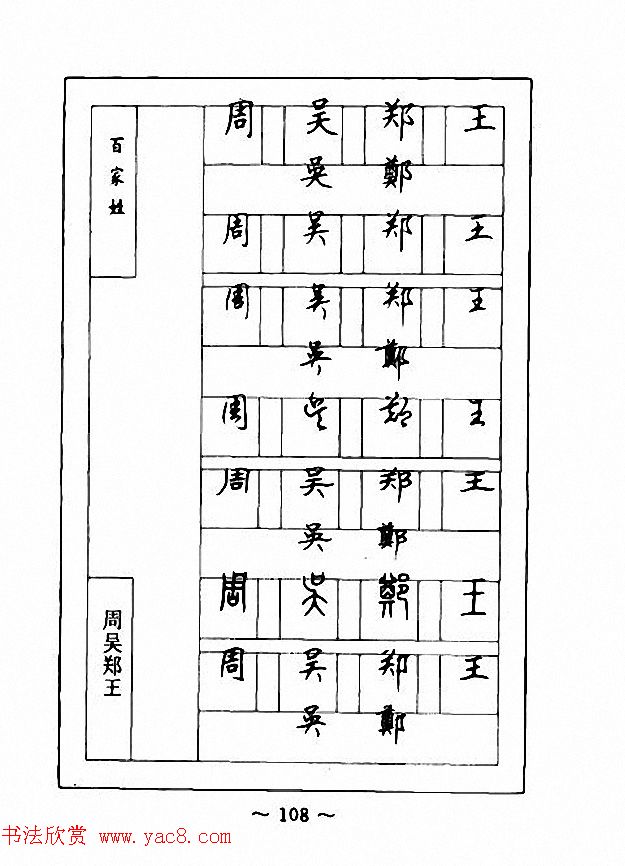 百家姓
周 吴 郑 王
吳 鄭
周 吴 郑 王
周 吴 郑 王
吳 鄭
周 吴 郑 王
周 吴 郑 王
吳 鄭
周 吳 鄭 王
周 吴 郑 王
吳 鄭
周吴郑王
~ 108 ~
书法欣赏 www.yac8.com